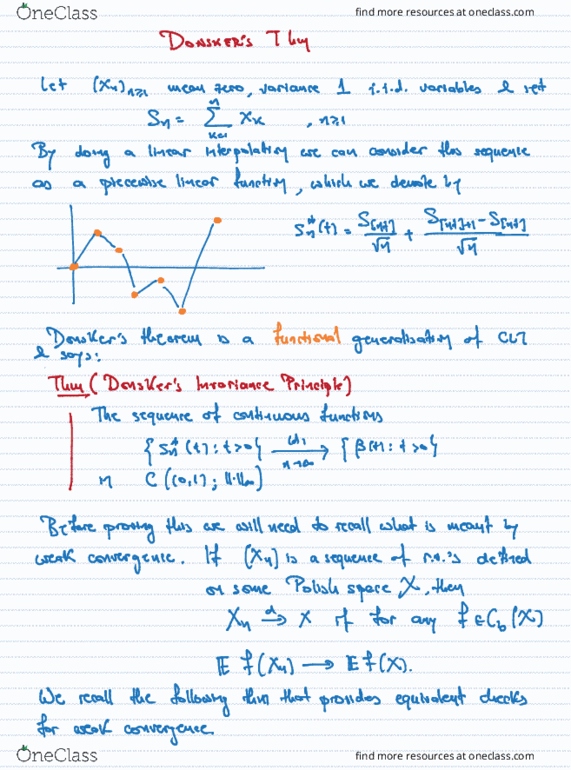 OneClass find more resources at oneclass.com
DONSKER'S Thm
Let (Xₙ)ₙ≥₁ mean zero, variance 1 i.i.d. variables & set
Sₙ = Σₖ₌₁ⁿ Xₖ , n≥1
By doing a linear interpolation we can consider this sequence
as a piecewise linear function, which we denote by
Sₙ*(t) = S[nt]/√n + (S[nt]+1 - S[nt])/√n
Donsker's theorem is a functional generalisation of CLT
& says:
Thm (Donsker's Invariance Principle)
The sequence of continuous functions
{Sₙ*(t) : t>0} → n→∞ {β(t) : t>0}
C((0,1); ||·||∞)
Before proving this we will need to recall what is meant by
weak convergence. If (Xₙ) is a sequence of r.v.'s defined
on some Polish space X, then
Xₙ →ᵈ X if for any f ∈ C_b(X)
E f(Xₙ) → E f(X).
We recall the following thm that provides equivalent checks
for weak convergence.
OneClass find more resources at oneclass.com